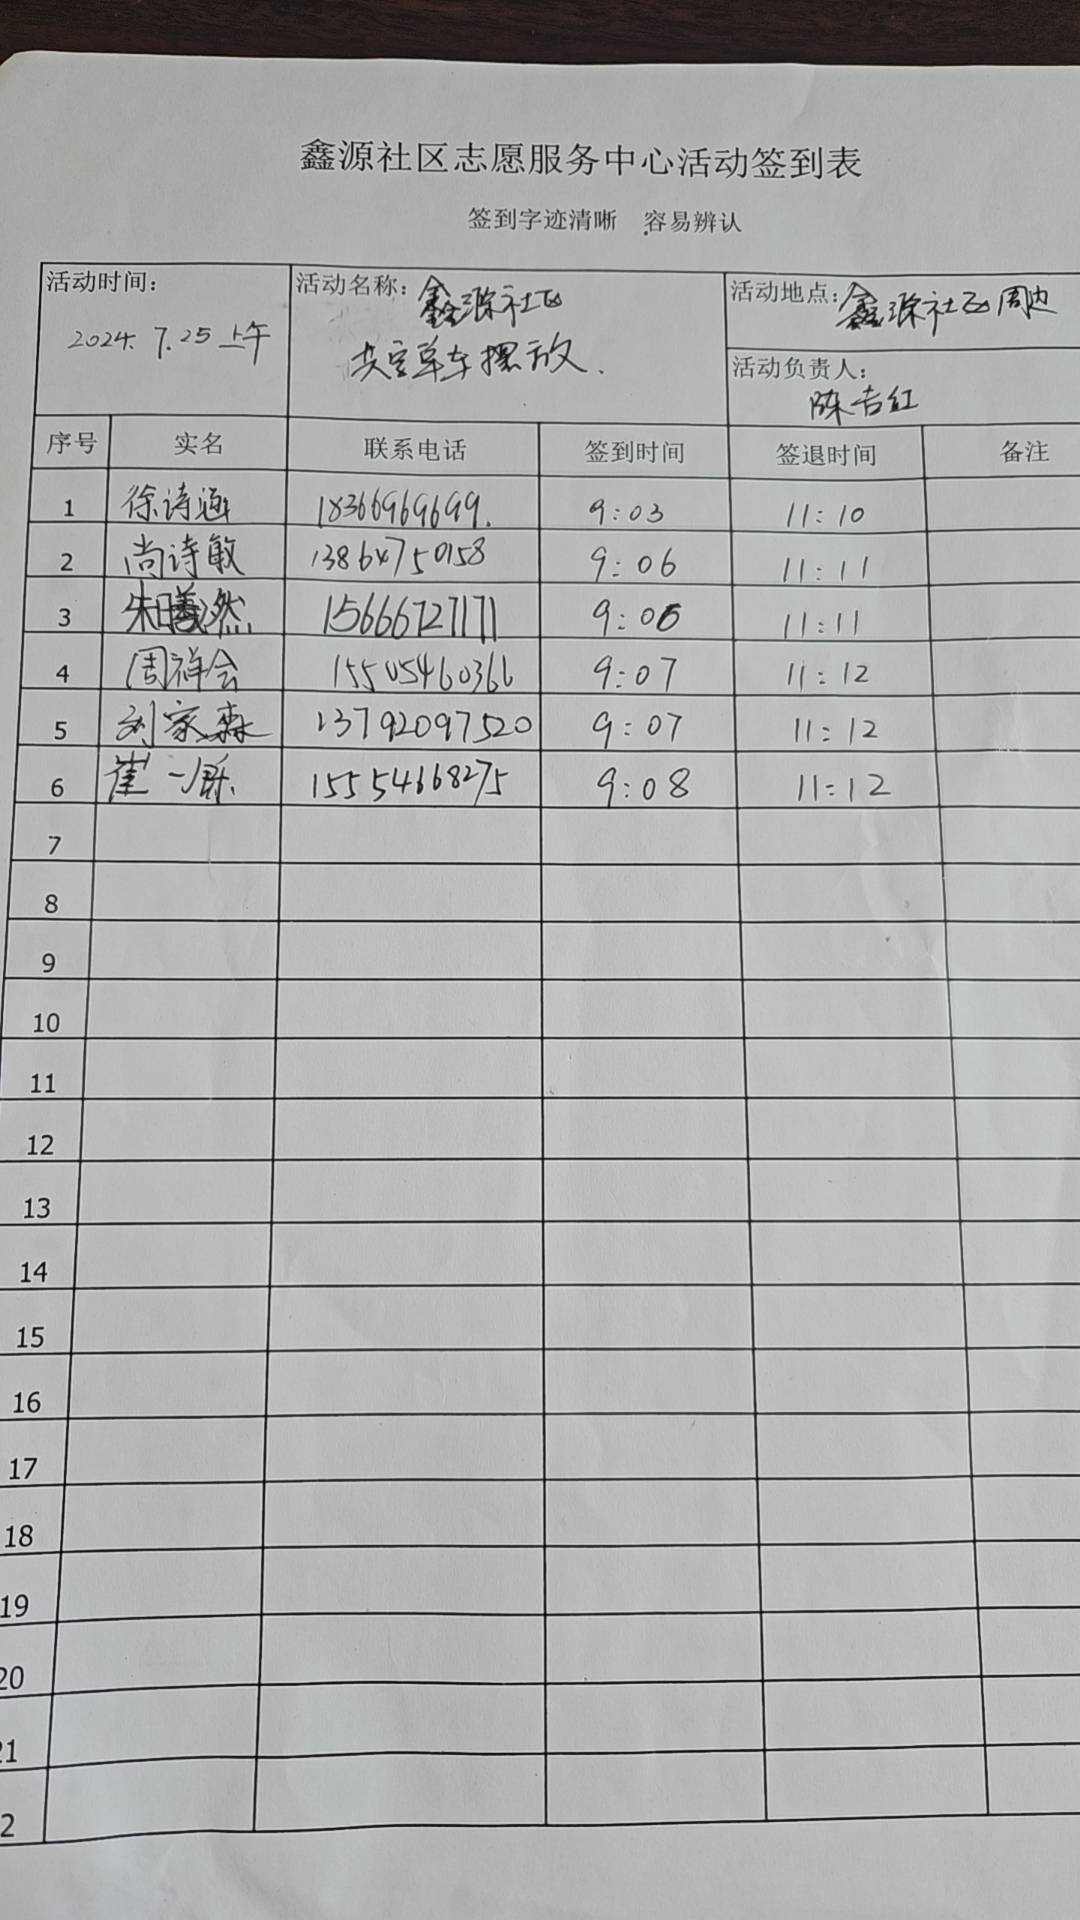 鑫源社区志愿服务中心活动签到表
签到字迹清晰 容易辨认
活动时间：
2024. 7. 25 上午
活动名称：鑫源社区
共享单车摆放.
活动地点：鑫源社区周边
活动负责人：
陈吉红
序号 实名 联系电话 签到时间 签退时间 备注
1 徐诗涵 18366969699. 9:03 11:10
2 尚诗敏 13864750158 9:06 11:11
3 朱曦然 15666727171 9:06 11:11
4 周祥会 15505460366 9:07 11:12
5 刘家森 13792097520 9:07 11:12
6 崔一 15554668275 9:08 11:12
7
8
9
10
11
12
13
14
15
16
17
18
19
20
21
2